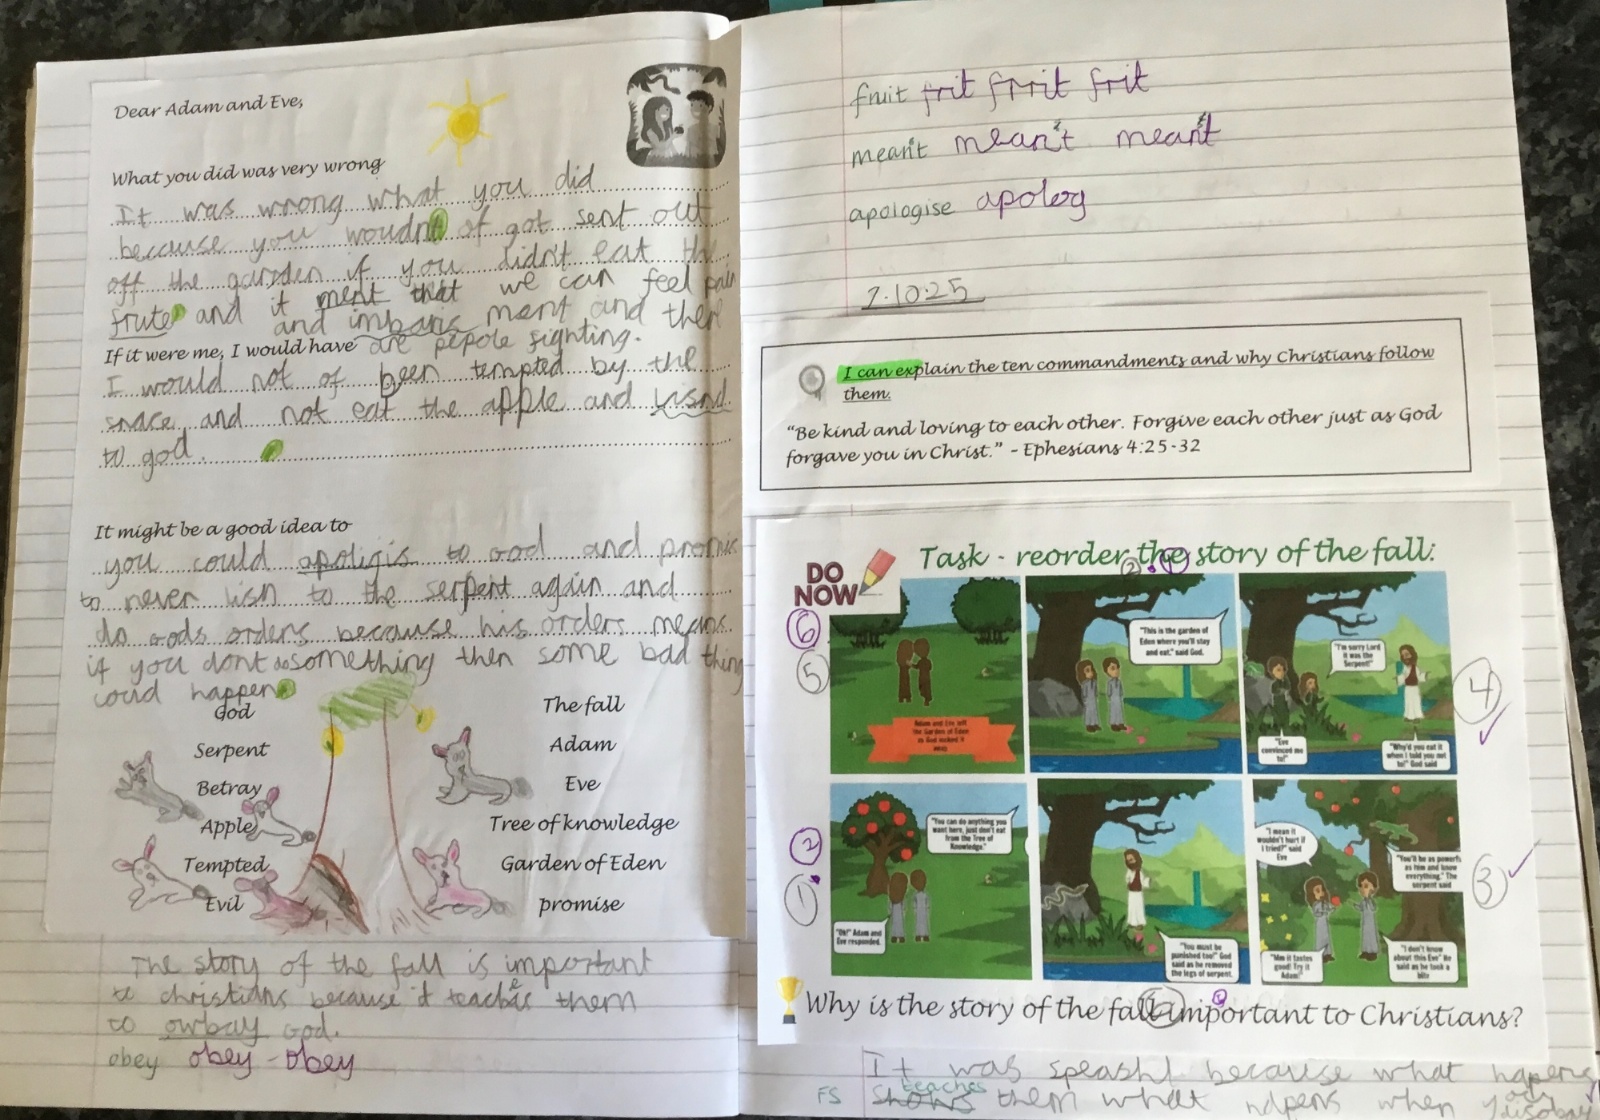 Dear Adam and Eve,
What you did was very wrong
It was wrong what you did
because you woudn't of got sent out
off the garden if you didn't eat the
frute and it ment that we can feel pain
and imbaris ment and ther
are pepole fighting.
If it were me, I would have
I would not of been tempted by the
snace and not eat the apple and
to god.
It might be a good idea to
you could apoligis to God and promis
to never lish to the serpent again and
do Gods orders because his orders means
if you dont do something then some bad thing
coud happen
God
The fall
Serpent
Adam
Betray
Eve
Apple
Tree of knowledge
Tempted
Garden of Eden
Evil
promise
The story of the fall is important
to christians because it teaches them
to owbay God.
obey obey - obey
fruit frit frrit frit
mean't mean't meant
apologise apolog
7.10.25
I can explain the ten commandments and why Christians follow
them.
“Be kind and loving to each other. Forgive each other just as God
forgave you in Christ.” - Ephesians 4:25-32
DO
NOW
Task - reorder the story of the fall:
2
6
5
Adam and Eve left
the Garden of Eden
as God walked it
away
"This is the garden of
Eden where you'll stay
and eat." said God.
"I'm sorry Lord
it was the
Serpent!"
"Eve
convinced me
to!"
"Why'd you eat it
when I told you not
to!" God said
4
2
1
"You can do anything you
want here, just don't eat
from the Tree of
Knowledge."
"Oh!" Adam and
Eve responded.
"You must be
punished too!" God
said as he removed
the legs of serpent.
"I mean it
wouldn't hurt if
I tried?" said
Eve
"You'll be as powerful
as Him and know
everything." The
serpent said
"Mm it tastes
good! Try it
Adam!"
"I don't know
about this Eve" He
said as he took a
bite
3
Why is the story of the fall important to Christians?
It was speashl because what hapens
teaches
FS shows them what happens when you